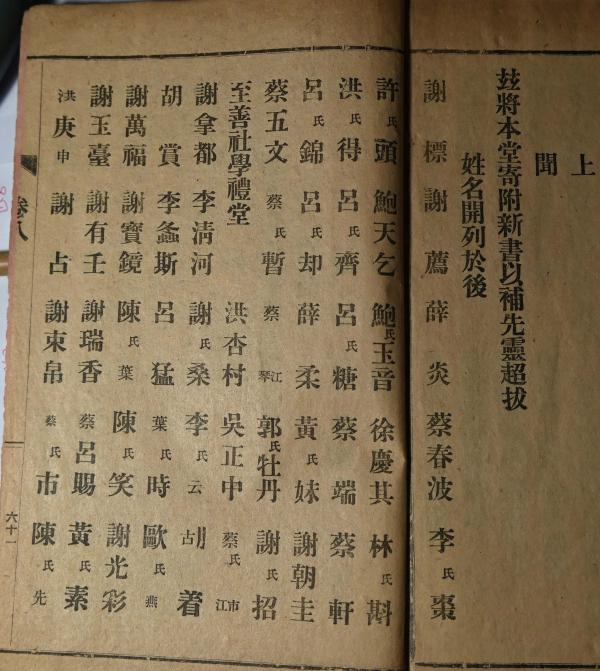 上
聞
玆將本堂寄附新書以補先靈超拔
姓名開列於後
謝標 謝薦 薛炎 蔡春波 李氏棗
許氏頭 鮑天乞 鮑氏玉音 徐慶其 林氏斟
洪氏得 呂齊 呂氏糖 蔡端 蔡軒
呂氏錦 呂却 薛柔 黃氏妹 謝朝圭
蔡五文 蔡氏暫 蔡江琴 郭氏牡丹 謝氏招
至善社學禮堂 洪杏村 吳正中 蔡氏市江
謝拿都 李淸河 謝氏桑 李氏云 胡着
胡賞 李螽斯 呂猛 葉氏時 歐氏燕
謝萬福 謝寶鏡 陳氏葉 陳氏笑 謝光彩
謝玉臺 謝有壬 謝瑞香 蔡氏呂賜 黃氏素
洪庚申 謝占 謝束帛 蔡氏市 陳氏先
卷八 六十一